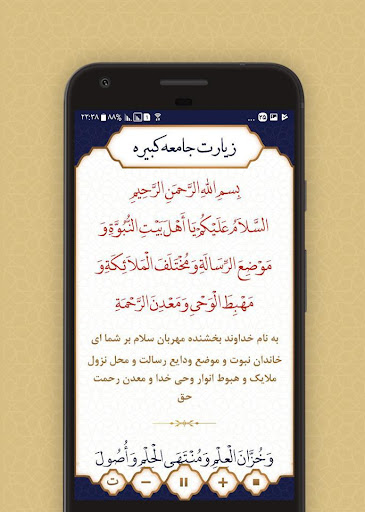 ۲۲:۳۸ ۸۸% ۲۵ ...
زیارت جامعه کبیره
بِسمِ اللهِ الرَّحمَنِ الرَّحیمِ
اَلسَّلامُ عَلَیْکُمْ یَا أَهْلَ بَیْتِ النُّبُوَّةِ وَ
مَوْضِعَ الرِّسَالَةِ وَ مُخْتَلَفَ الْمَلائِکَةِ وَ
مَهْبِطَ الْوَحْیِ وَ مَعْدِنَ الرَّحْمَةِ
به نام خداوند بخشنده مهربان سلام بر شما ای
خاندان نبوت و موضع ودایع رسالت و محل نزول
ملایک و هبوط انوار وحی خدا و معدن رحمت
حق
وَ خُزَّانَ الْعِلْمِ وَ مُنْتَهَی الْحِلْمِ وَ أُصُولَ
ت